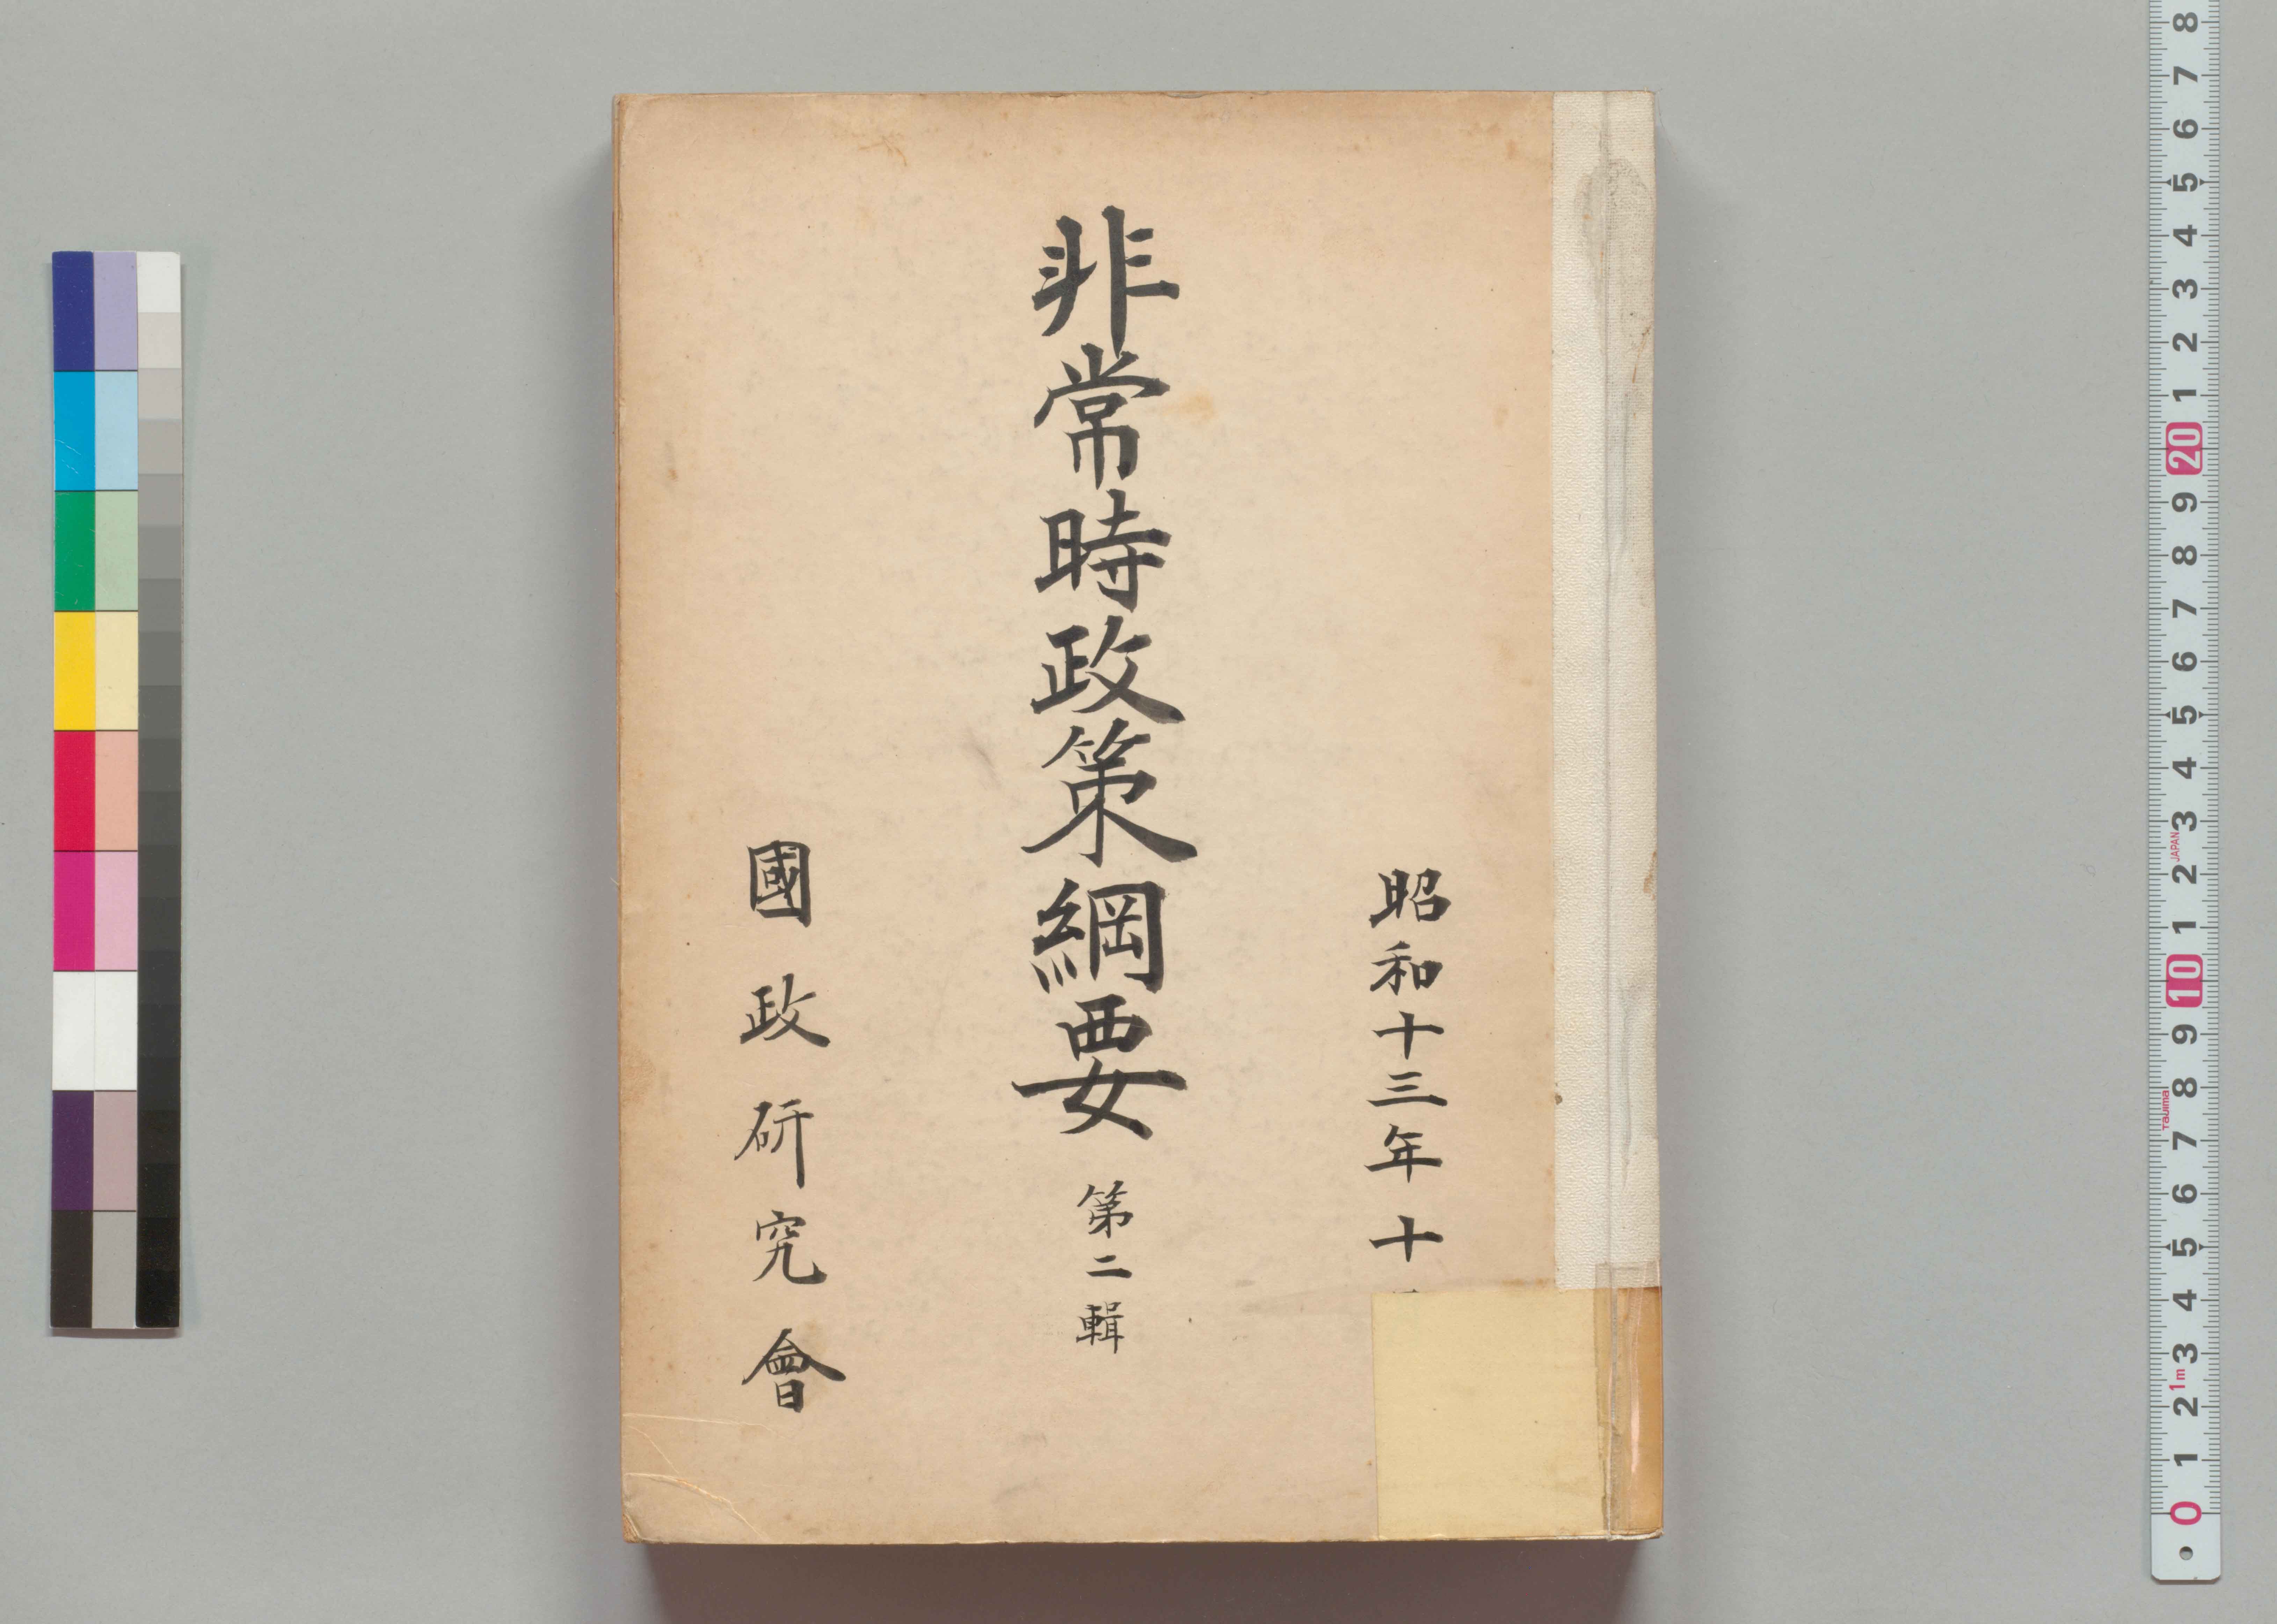 昭和十三年十
非常時政策綱要 第二輯
國政研究會
8
7
6
5
4
3
2
1
20
9
8
7
6
5
4
3
JAPAN
2
1
10
9
8
Tajima
7
6
5
4
3
1m
2
1
0